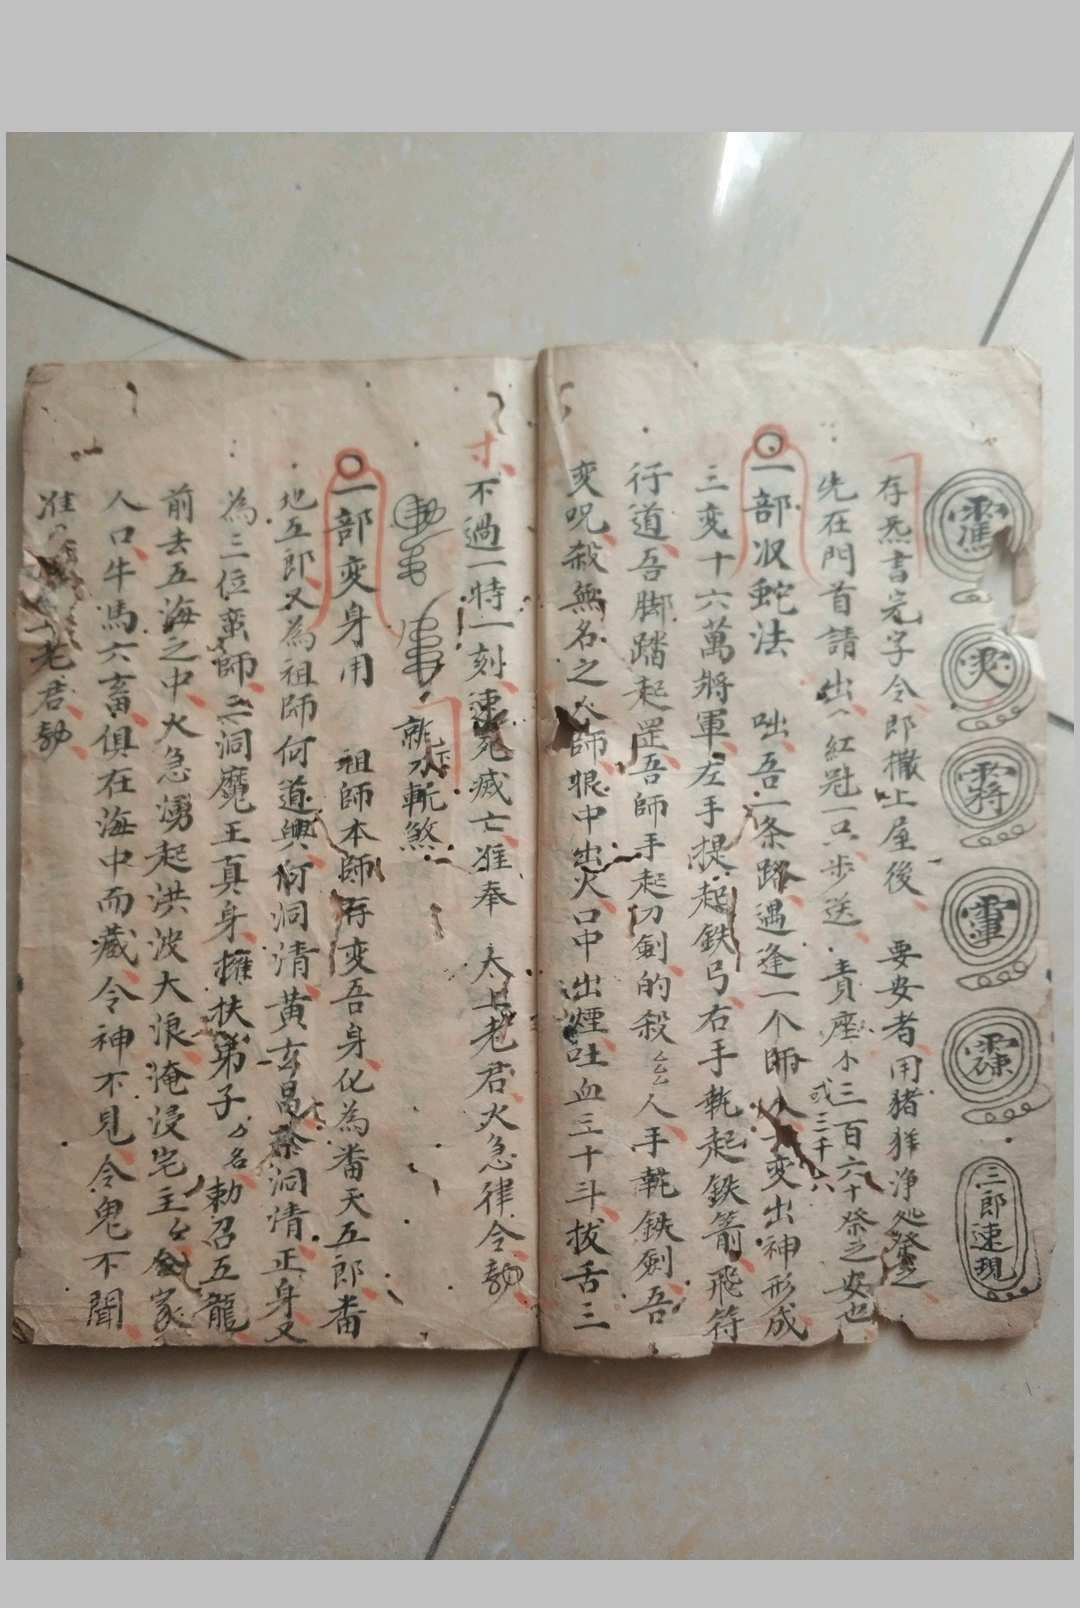 三郎速現
存炁書完字令即撒上屋後 要安者用猪羊净処祭之
先在門首請出紅冠一只步送責座小三百六十祭之安也
或三千六
一部収蛇法 咄吾一条路遇逢一个師人變出神形成
三变十六萬將軍左手提起鉄弓右手執起鉄箭飛符
行道吾脚踏起罡吾師手起刀劍的殺厶厶人手執鉄劍吾
变呪殺無名之人師眼中出火口中出煙吐血三十斗拔舌三
寸
不過一時一刻速死滅亡准奉 太上老君火急律令勅
就刀斬煞
一部变身用 祖師本師存变吾身化為番天五郎番
地五郎又為祖師何道興何洞清黄玄昌洞清正身又
為三位蛮師三洞魔王真身擁扶弟子厶名勅召五龍
前去五海之中火急湧起洪波大浪淹浸宅主厶家
人口牛馬六畜俱在海中而藏令神不見令鬼不聞
准老君勅